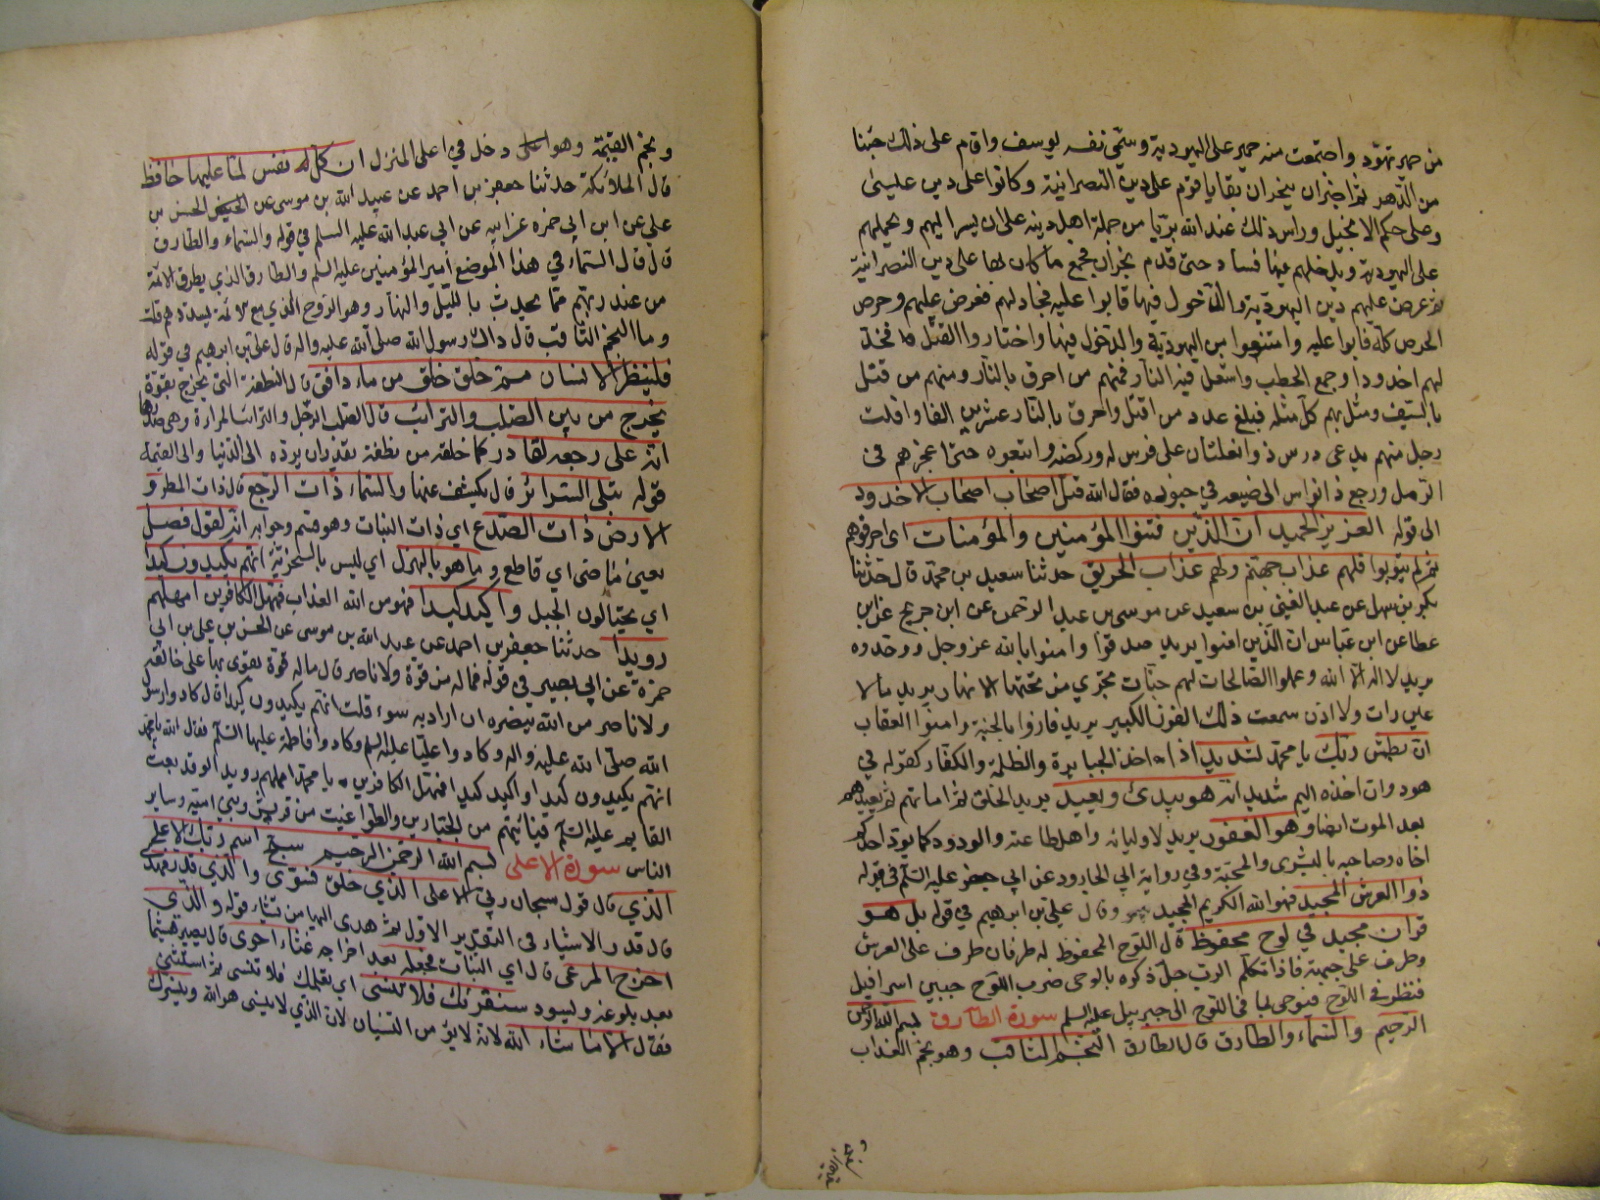 من حمير تهود واجتمعت منه حمير على اليهودية وسمى نفسه يوسف واقام على ذلك حينا
من الدهر ثم اخبر ان بنجران بقايا قوم على دين النصرانية وكانوا على دين عيسى
وعلى حكم الانجيل وراس ذلك عبد الله بن بريا من جملة اهل دينه على ان يسير اليهم ويحملهم
على اليهودية ويدخلهم فيها فسار حتى قدم نجران فجمع ما كان بها على دين النصرانية
ثم عرض عليهم دين اليهودية والدخول فيها فابوا عليه فجادلهم فعرض عليهم وحرص
الحرص كله فابوا عليه وامتنعوا من اليهودية والدخول فيها واختاروا القتل فاتخذ
لهم اخدودا وجمع الحطب واشعل فيه النار فمنهم من احرق بالنار ومنهم من قتل
بالسيف ومثل بهم كل مثله فبلغ عدد من اقتل واحرق بالنار عشرين الفا وافلت
رجل منهم يدعى دوس ذو ثعلبان على فرس له وركضه واتبعوه حتى اعجزهم في
الرمل ورجع ذا نواس الى ضيعه في جنوده فقال الله قتل اصحاب الاخدود
الى قوله العزيز الحميد ان الذين فتنوا المؤمنين والمؤمنات اى احرقوهم
ثم لم يتوبوا فلهم عذاب جهنم ولهم عذاب الحريق حدثنا سعيد بن محمد قال حدثنا
بكر بن سهل عن عبد الغني بن سعيد عن موسى بن عبد الرحمن عن ابن جريج عن
عطا عن ابن عباس ان الذين امنوا يريد صدقوا وامنوا بالله عز وجل ووحدوه
يريد لا اله الا الله وعملوا الصالحات لهم جنات تجري من تحتها الانهار يريد ما لا
عين رات ولا اذن سمعت ذلك الفوز الكبير يريد فازوا بالجنة وامنوا العقاب
ان بطش ربك يا محمد لشديد اذا اخذ الجبابرة والظلمة والكفار كقوله في
هود وان اخذه اليم شديد انه هو يبدئ ويعيد يريد الخلق ثم اماتهم ثم يعيدهم
بعد الموت ايضا وهو الغفور يريد لاوليائه واهل طاعته والودود كما يود احدكم
اخاه وصاحبه بالبشرى والمحبة وفي رواية ابي الجارود عن ابي جعفر عليه السلم في قوله
ذوا العرش المجيد فهو الله الكريم المجيد وقال علي بن ابراهيم في قوله بل هو
قران مجيد في لوح محفوظ قال اللوح المحفوظ له طرفان طرف على العرش
وطرف على جبهة فاذا تكلم الرب جل ذكره بالوحى ضرب اللوح جبين اسرافيل
فنظر في اللوح فيوحى بما في اللوح الى جبرييل عليه السلم سورة الطارق بسم الله الرحمن
الرحيم والسماء والطارق قال الطارق النجم الثاقب وهو نجم العذاب
ونجم القيمة وهو دخل في اعلى المنزل ان كل نفس لما عليها حافظ
قال الملائكة حدثنا جعفر بن احمد عن عبيد الله بن موسى عن الحسن بن
على عن ابن ابي حمزه عن ابيه عن ابي بصير عن ابي عبد الله عليه السلم في قوله والسماء والطارق
قال قال السماء في هذا الموضع امير المؤمنين عليه السلم والطارق الذي يطرق الائمة
من عند ربهم مما يحدث بالليل والنهار وهو الروح الذي مع الائمة يسددهم قلت
وما النجم الثاقب قال ذاك رسول الله صلى الله عليه واله قال علي بن ابراهيم في قوله
فلينظر الانسان مم خلق خلق من ماء دافق قال النطفة التى يخرج بقوة
يخرج من بين الصلب والترائب قال الصلب الرجل والترائب المراة وهي صدرها
انه على رجعه لقادر كما خلقه من نطفة يقدر ان يرده الى الدنيا والى القيمة
قوله يوم تبلى السرائر قال يكشف عنها والسماء ذات الرجع قال ذات المطر و
الارض ذات الصدع اي ذات النبات وهو قسم وجوابه انه لقول فصل
يعني ماضى اي قاطع وما هو بالهزل اي ليس بالسخرية انهم يكيدون كيدا
اي يحتالون الحيل واكيد كيدا فهو من الله العذاب فمهل الكافرين امهلهم
رويدا حدثنا جعفر بن احمد عن عبد الله بن موسى عن الحسن بن على بن ابي
حمزة عن ابي بصير في قوله فما له من قوة ولا ناصر قال ما له قوة يقوى بها على خالقه
ولا ناصر من الله ينصره ان اراد به سوء قلت انهم يكيدون كيدا قال كادوا رسول
الله صلى الله عليه واله وكادوا عليا عليه السلم وكادوا فاطمة عليها السلم فقال الله يا محمد
انهم يكيدون كيدا واكيد كيدا فمهل الكافرين يا محمد امهلهم رويدا لو قد بعث
القايم عليه السلم فينتقم من الجبارين والطواغيت من قريش وبني امية وساير
الناس سورة الاعلى بسم الله الرحمن الرحيم سبح اسم ربك الاعلى
الذي قال قول سبحان ربي الاعلى الذي خلق فسوى والذي قدر فهدى
قال قدر الاشياء في التقدير الاول ثم هدى اليها من يشاء قوله والذي
اخرج المرعى قال اي النبات فجعله بعد اخراجه غثاء احوى قال يصير هشيما
بعد بلوغه ويسود سنقرئك فلا تنسى اي نعلمك فلا تنسى ثم استثنى
فقال الا ما شاء الله لانه لا يؤمن النسيان لان الذي لا ينسى هو الله ونيسرك